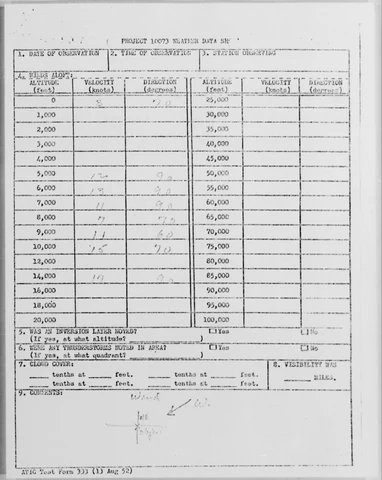 PROJECT 10073 WEATHER DATA
1. DATE OF OBSERVATION 2. TIME OF OBSERVATION 3. STATION OBSERVING
4. WINDS ALOFT:
ALTITUDE (feet) VELOCITY (knots) DIRECTION (degrees) ALTITUDE (feet) VELOCITY (knots) DIRECTION (degrees)
0 8 70 25,000
1,000 30,000
2,000 35,000
3,000 40,000
4,000 45,000
5,000 90 50,000
6,000 13 90 55,000
7,000 11 90 60,000
8,000 7 70 65,000
9,000 11 60 70,000
10,000 15 70 75,000
12,000 80,000
14,000 90 85,000
16,000 90,000
18,000 95,000
20,000 100,000
5. WAS AN INVERSION LAYER NOTED? Yes No
(If yes, at what altitude? )
6. WERE ANY THUNDERSTORMS NOTED IN AREA? Yes No
(If yes, at what quadrant? )
7. CLOUD COVER: 8. VISIBILITY WAS
tenths at feet. tenths at feet. MILES.
tenths at feet. tenths at feet.
9. COMMENTS:
Wind
ATIC Test Form 333 (13 Aug 52)